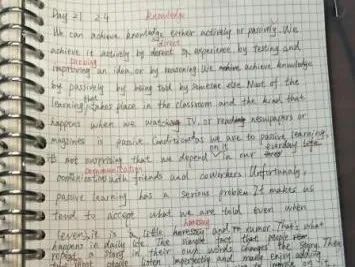 Day 21 2.4 knowledge
We can achieve knowledge either actively or passively. We
achieve it actively by direct experience, by testing and
proving an idea, or by reasoning. We achieve knowledge
by passively by being told by someone else. Most of the
learning that takes place in the classroom and the kind that
happens when we watch TV, or read newspapers or
magazines is passive. Conditioned as we are to passive learning,
it's not surprising that we depend on it in our everyday life
communication with friends and coworkers. Unfortunately,
passive learning has a serious problem. It makes us
tend to accept what we are told even when
even it is a little, hearsay and rumor. That's what
happens in daily life. The simple fact that people
repeat a story in their own words changes the story. Then
listen imperfectly and many enjoy adding